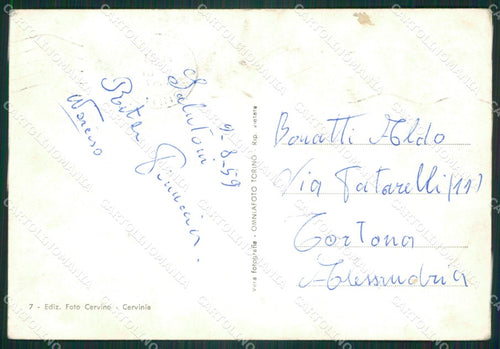 9-8-59
Salutoni
Rita
Vera Fotografia - OMNIAFOTO TORINO - Rip. Vietata
Bonatti Aldo
Via Tatarelli (11)
Tortona
Alessandria
7 - Ediz. Foto Cervino - Cervinia
CARTOLINOMANIA